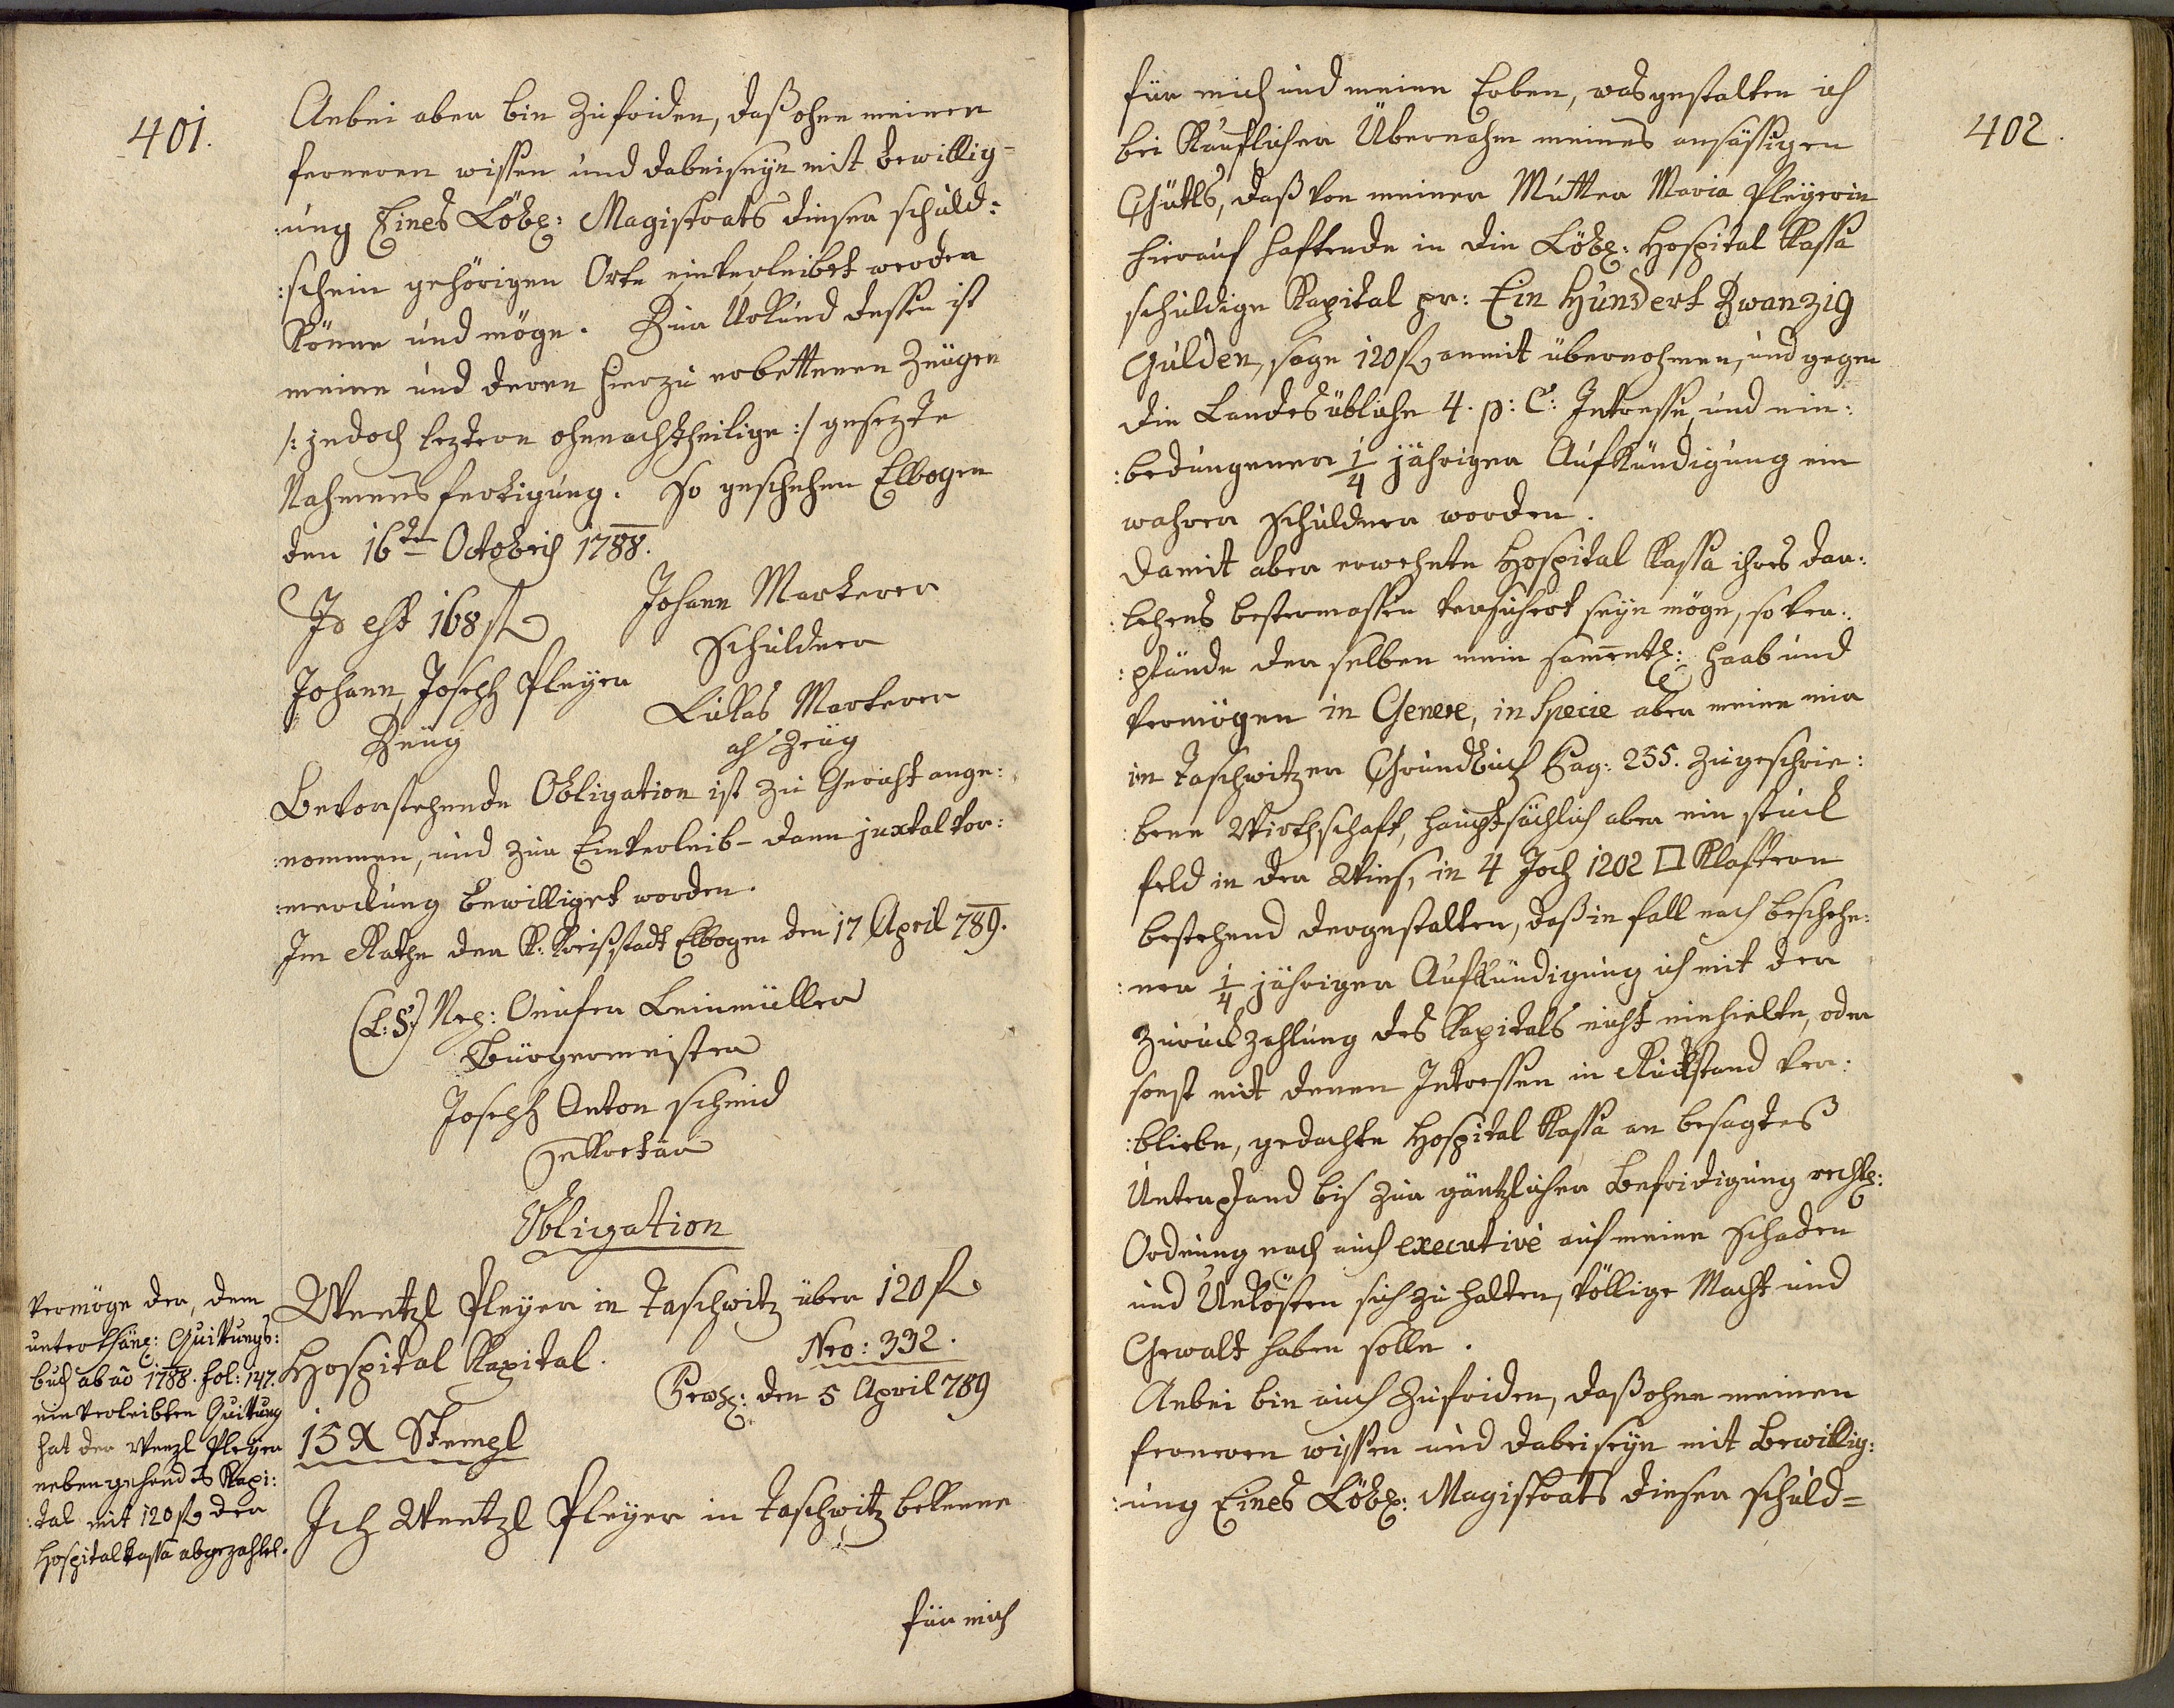 401.
Anbei aber bin zufriden, daß ohne meiner
ferneren wissen und dabeiseÿn mit bewillig=
:ung Eines Löbl: Magistrats dieser schuld=
:schein gehörigen Orts einverleibet werden
könne und möge. Zur Urkund dessen ist
meine und deren hierzu erbettenen Zeugen
/: jedoch leztern ohnnachtheilige :/ gesezte
Nahmensfertigung. So geschehen Elbogen
den 16ten Octobris 1788.
Id est 168 fl
Johann Markerer
Schuldner
Johann Joseph Pleÿer
Zeug
Lukas Markerer
als Zeug
Bevorstehende Obligation ist zu Gericht ange:
:nommen, und zur Einverleib- dann juxtal vor:
:merckung bewilliget worden.
Im Rathe der K. Kreißstadt Elbogen den 17 April 789.
(L:S:) Nep: Onufer Leinmüller
Bürgermeister
Joseph Anton Schmid
Sekretär
Obligation
Wentzl Pleÿer in Taschwitz über 120 fl
Hospital Kapital.
Nro: 332.
Prs: den 5 April 789
15 X Stempl
Ich Wentzl Pleÿer in Taschwitz bekenne
für mich
Vermöge der, dem
unterthän: Quittungs:
buch ab ao 1788. fol: 147.
einverleibten Quittung
hat der Wenzl Pleÿer
nebengehendes Kapi:
:tal mit 120 fl der
Hospitalkassa abgezahlt.
402.
für mich und meine Erben, wasgestalten ich
bei Käuflicher Übernahm meines ansässigen
Güttls, daß von meiner Mutter Maria Pleÿerin
hierauf haftende in die Löbl: Hospital Kassa
schuldige Kapital pr: Ein Hundert Zwanzig
Gulden, sage 120 fl anmit übernohmen, und gegen
die Landesübliche 4. p: C: Intresse, und ein:
:bedungener 1/4 jähriger Aufkündigung ein
wahrer Schuldner worden.
Damit aber erwehnte Hospital Kassa ihres dar:
:lehens bestermassen versichert seÿn möge, so ver:
:pfände derselben mein samentl: Haab und
Vermögen in Genere, in Specie aber meine mir
im Taschwitzer Grundbuch Pag: 255. zugeschrie:
:bene Wirthschaft, hauptsächlich aber ein stuck
feld in der Wies, in 4 Joch 1202 □ Klaftern
bestehend dergestalten, daß in fall nach beschehe:
:ner 1/4 jähriger Aufkündigung ich mit der
Zuruckzahlung des Kapitals nicht einhielte, oder
sonst mit denen Intressen in Rückstand ver:
:bliebe, gedachte Hospital Kassa an besagtes
Unterpfand bis zur gäntzlicher Befridigung rechtl:
Ordnung nach auch executive auf meine Schaden
und Unkösten sich zu halten, völlige Macht und
Gewalt haben solle.
Anbei bin auch zufriden, daß ohne meinen
ferneren wissen und dabeiseÿn mit Bewillig:
:ung Eines Löbl: Magistrats dieser schuld=